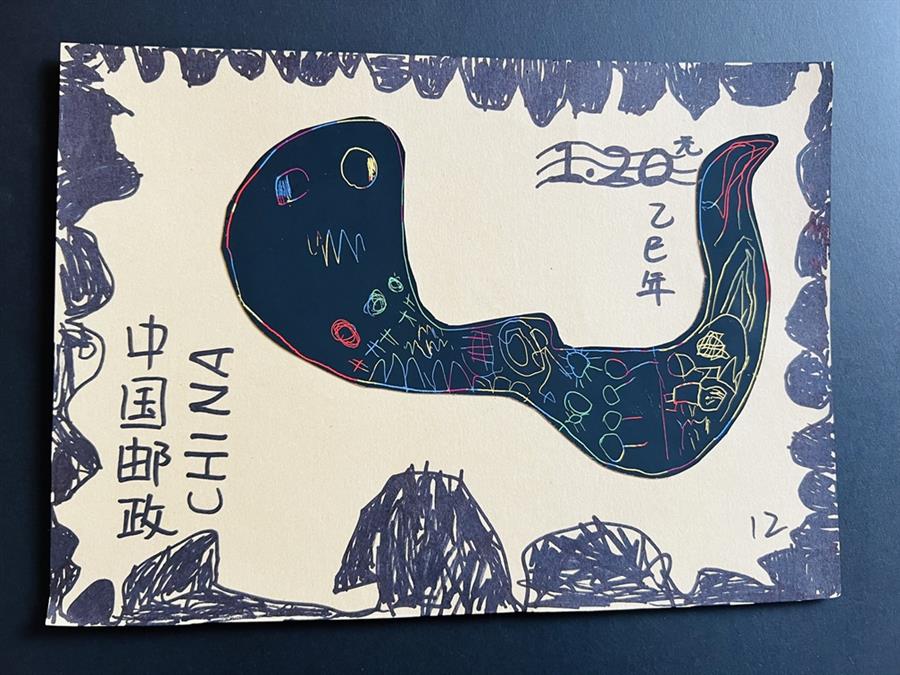 1.20元
乙巳年
中国邮政
CHINA
12